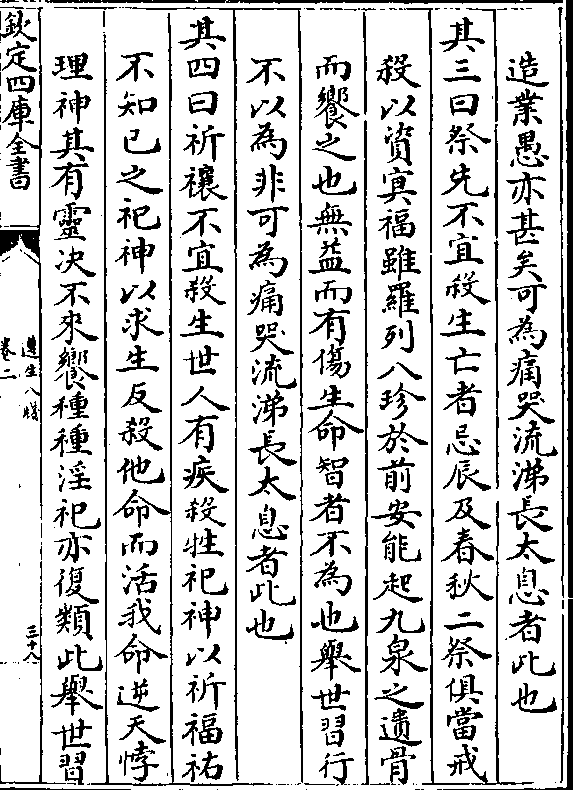 造業愚亦甚矣可為痛哭流涕長太息者此也
其三曰祭先不宜殺生亡者忌辰及春秋二祭俱當戒
殺以資冥福雖羅列八珍於前安能起九泉之遺骨
而饗之也無益而有傷生命智者不為也舉世習行
不以為非可為痛哭流涕長太息者此也
其四曰祈禳不宜殺生世人有疾殺牲祀神以祈福祐
不知已之祀神以求生反殺他命而活我命逆天悖
理神其有靈决不來饗種種淫祀亦復類此舉世習
欽定四庫全書
遵生八牋
卷二
三十八